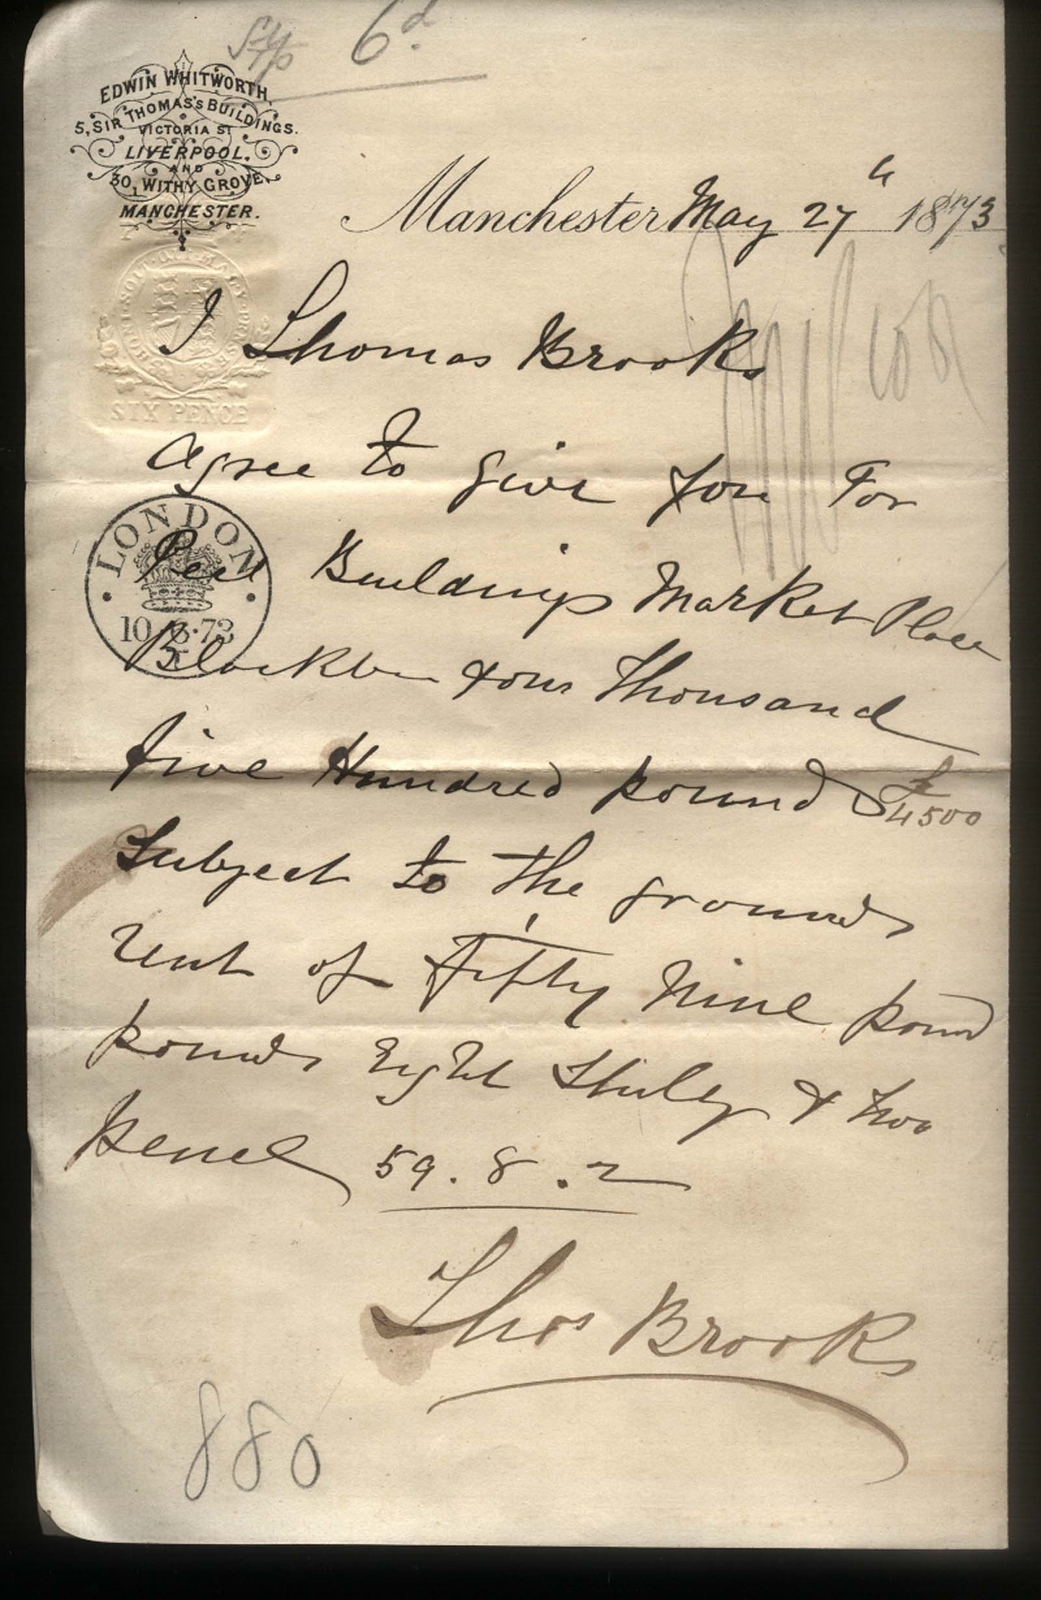 6d
EDWIN WHITWORTH,
5, SIR THOMAS'S BUILDINGS.
VICTORIA ST
LIVERPOOL.
AND
30, WITHY GROVE,
MANCHESTER.
Manchester May 27th 1873
I Thomas Brooks
SIX PENCE
agree to give you For
LONDON
Peel Buildings Market Place
10.3.73
Blackbn four Thousand
five Hundred pounds £4500
Subject to the grounds
rent of Fifty Nine pound
pounds Eight Shilg & two
pence 59.8.2
Thos Brooks
880